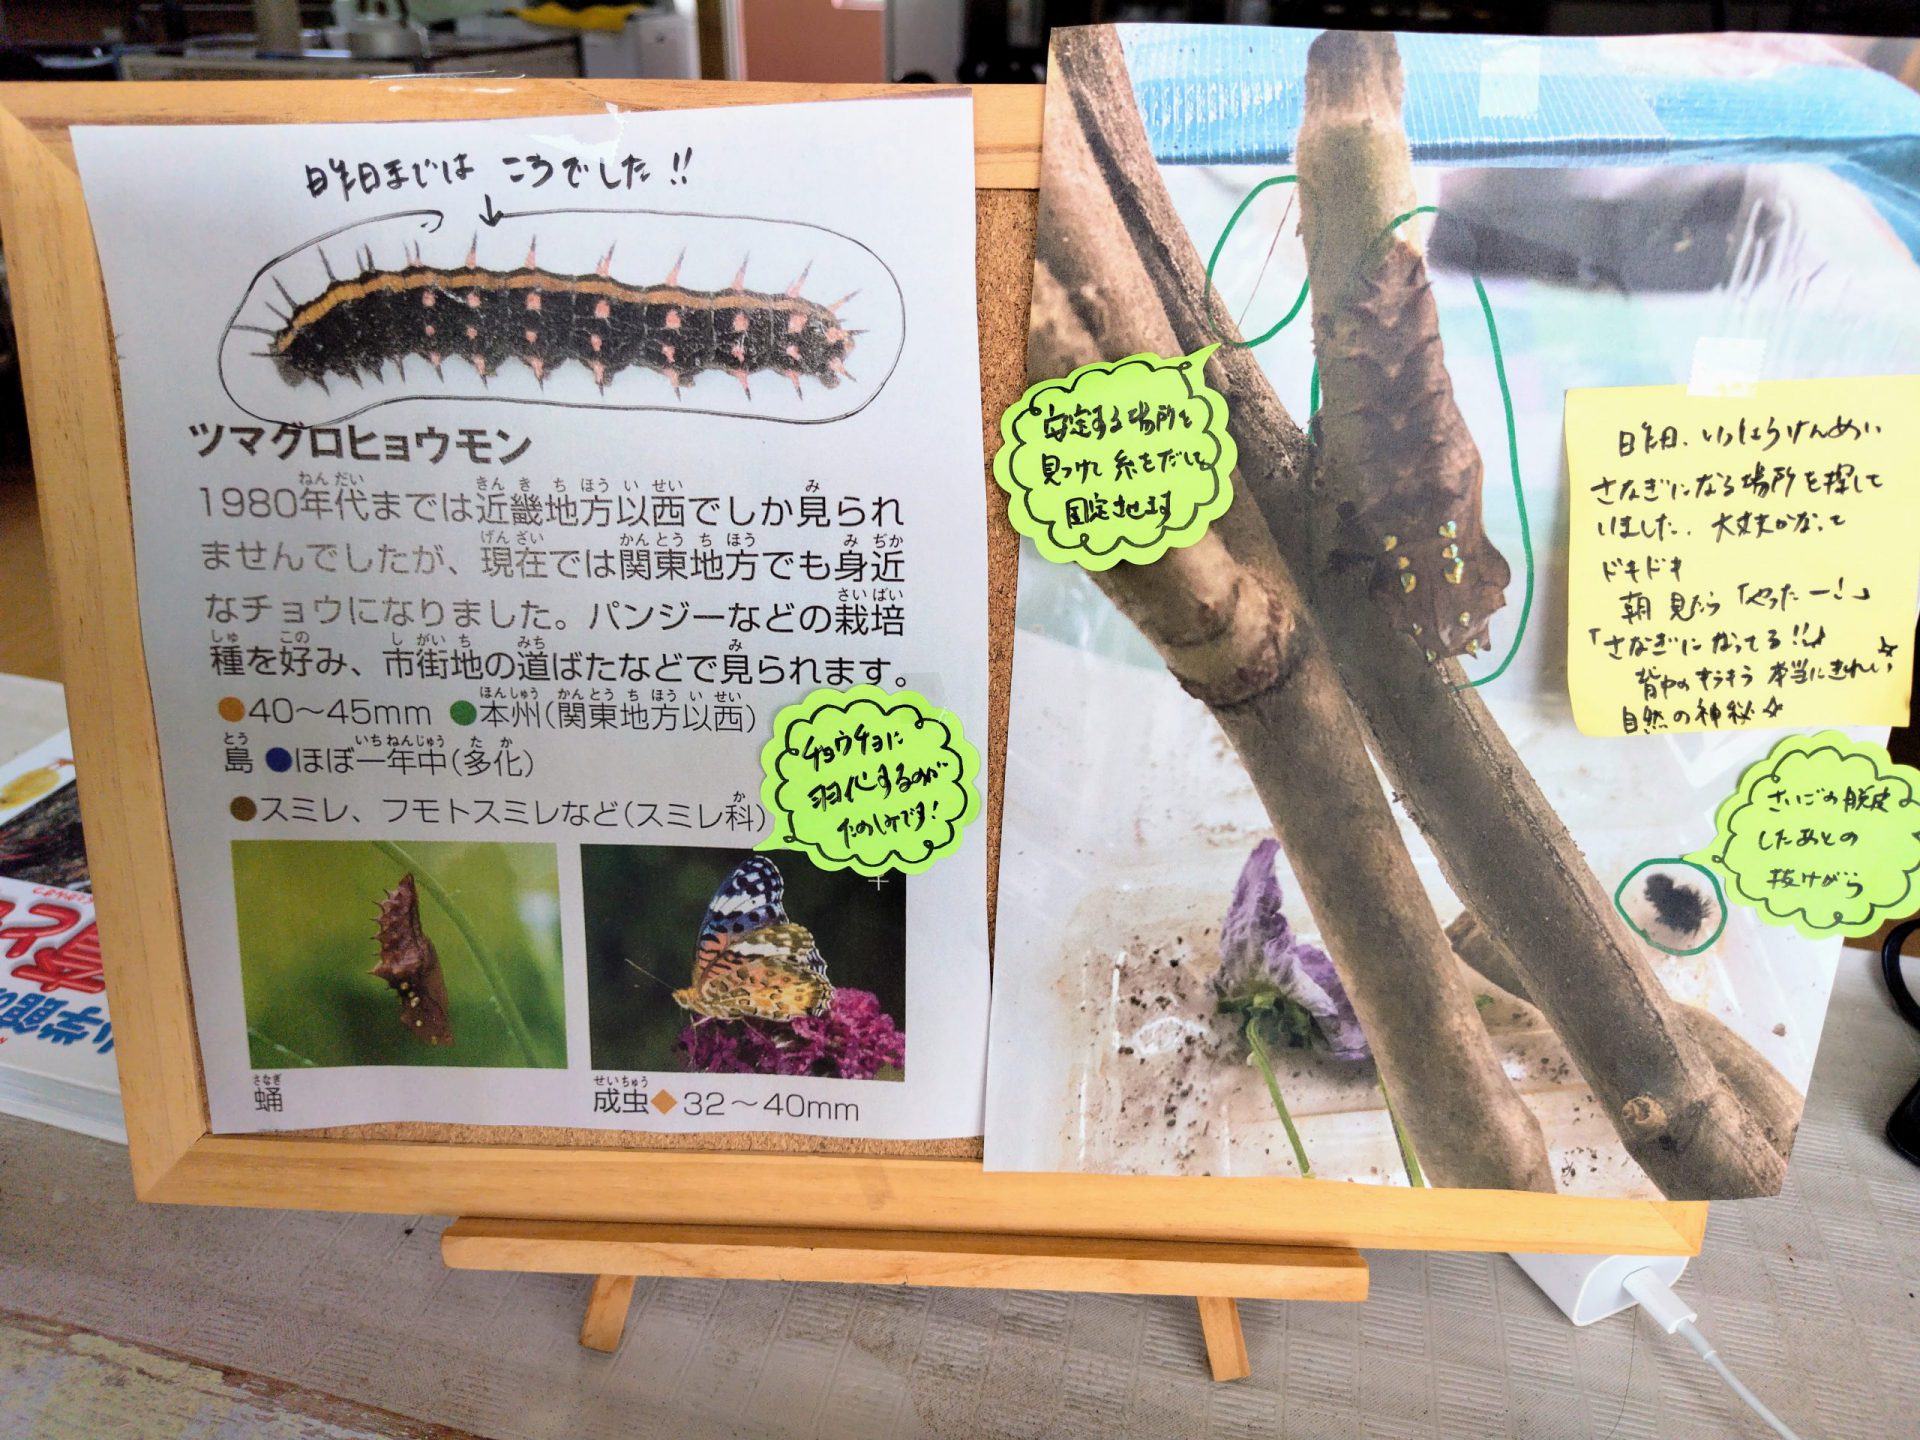 昨日までは こうでした!!
ツマグロヒョウモン
1980年代までは近畿地方以西でしか見られ
ませんでしたが、現在では関東地方でも身近
なチョウになりました。パンジーなどの栽培
種を好み、市街地の道ばたなどで見られます。
●40～45mm ●本州(関東地方以西)
島 ●ほぼ一年中(多化)
●スミレ、フモトスミレなど(スミレ科)
チョウチョに
羽化するのが
たのしみです!
蛹
成虫◆32～40mm
安定する場所を
見つけて 糸をだして
固定させます
昨日、いっしょうけんめい
さなぎになる場所を探して
いました。大丈夫かなって
ドキドキ
朝 見たら「やったー!」
「さなぎになってる!!」
背中のキラキラ 本当にきれい
自然の神秘☆
さいごの脱皮
したあとの
抜けがら